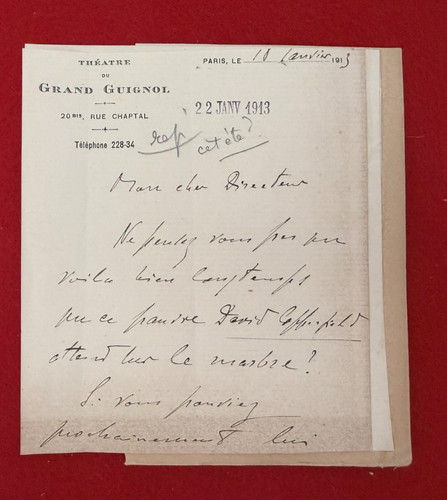 THÉATRE
DU
GRAND GUIGNOL
20 BIS, RUE CHAPTAL
Téléphone 228-34
PARIS, LE 10 Janvier 1913
22 JANV 1913
rep
cet été?
Mon cher Directeur
Ne pensez vous pas que
voilà bien longtemps
que ce pauvre David Copperfield
attend sur le marbre?
Si vous pouviez
prochainement lui